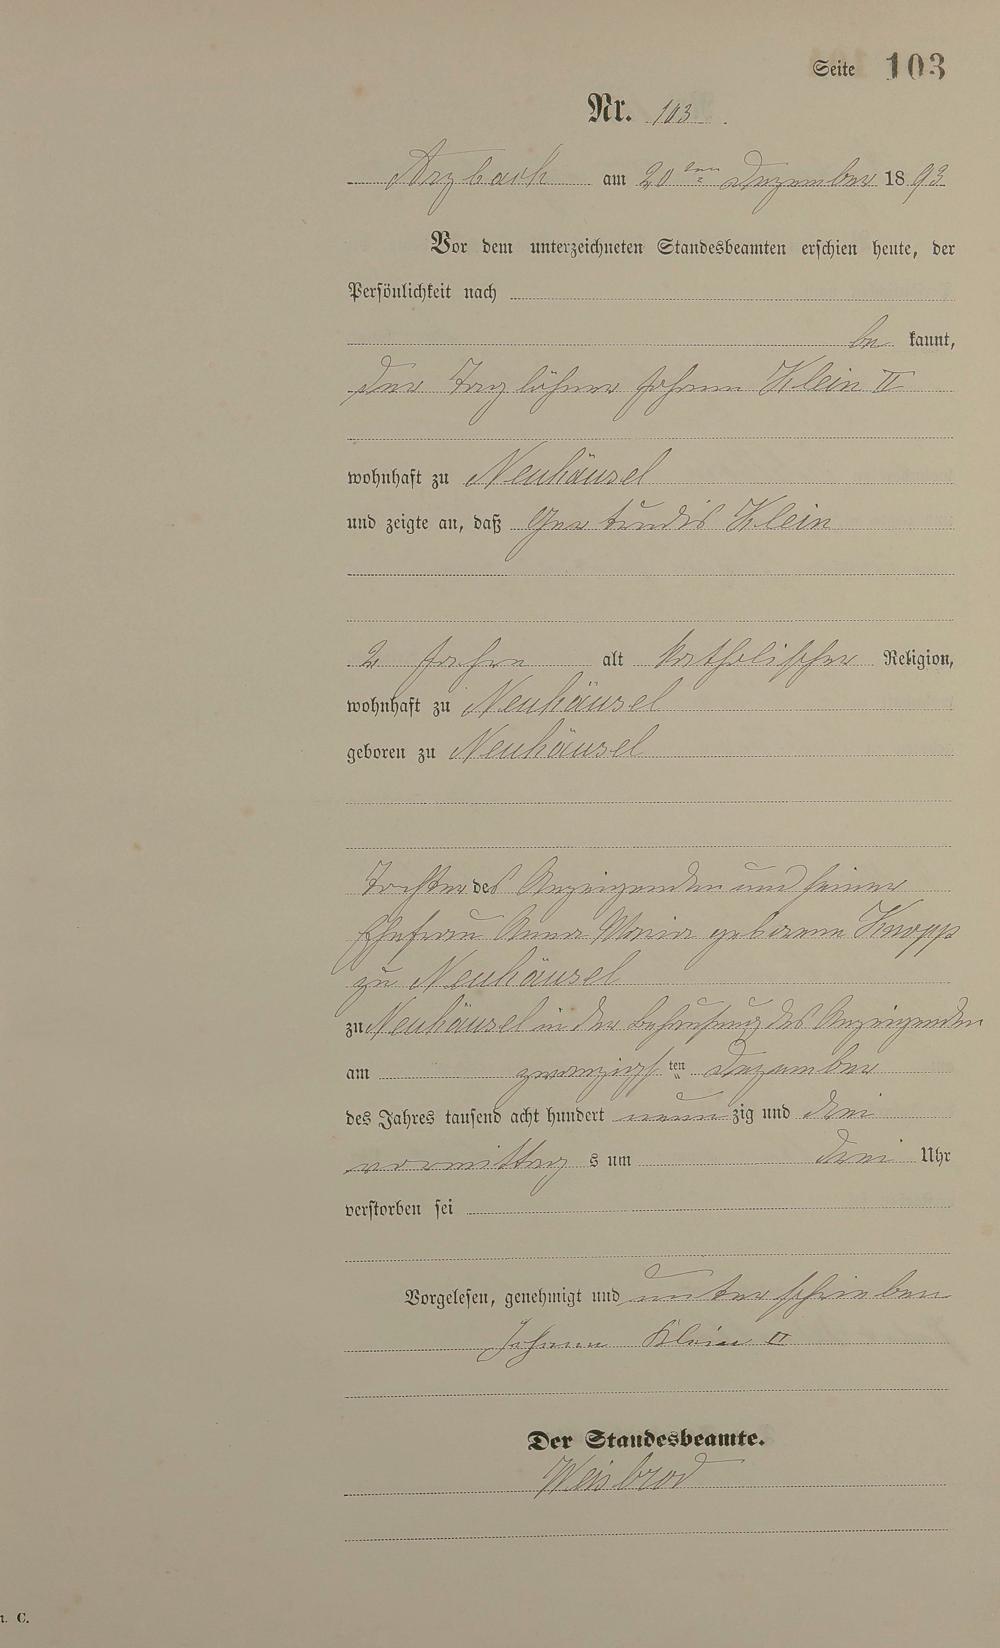 Seite 103
Nr. 103.
Arzbach am 20 ten Dezember 1893
Vor dem unterzeichneten Standesbeamten erschien heute, der
Persönlichkeit nach
be kannt,
der Taglöhner Johann Klein II
wohnhaft zu Neuhäusel
und zeigte an, daß Gertrudis Klein
2 Jahre alt katholischer Religion,
wohnhaft zu Neuhäusel
geboren zu Neuhäusel
Tochter des Anzeigenden und seiner
Ehefrau Anna Maria geborene Knopp
zu Neuhäusel
zu Neuhäusel in der Behausung des Anzeigenden
am zwanzigsten Dezember
des Jahres tausend acht hundert neunzig und drei
vormittags um drei Uhr
verstorben sei
Vorgelesen, genehmigt und unterschrieben
Johann Klein II
Der Standesbeamte.
Weisbrod
. C.